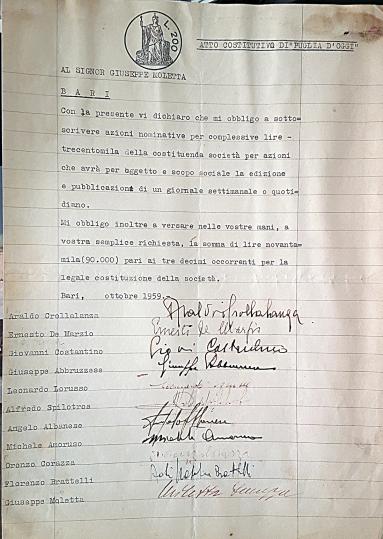 L. 200
ATTO COSTITUTIVO DI "PUGLIA D'OGGI"
AL SIGNOR GIUSEPPE MOLETTA
B A R I
Con la presente vi dichiaro che mi obbligo a sotto-
scrivere azioni nominative per complessive lire -
trecentomila della costituenda società per azioni
che avrà per oggetto e scopo sociale la edizione
e pubblicazione di un giornale settimanale o quoti-
diano.
Mi obbligo inoltre a versare nelle vostre mani, a
vostra semplice richiesta, la somma di lire novanta-
mila(90.000) pari ai tre decimi occorrenti per la
legale costituzione della società.
Bari, ottobre 1959.
Araldo Crollalanza Araldo Crollalanza
Ernesto De Marzio Ernesto de Marzio
Giovanni Costantino Giovanni Costantino
Giuseppe Abbruzzese Giuseppe Abbruzzese
Leonardo Lorusso Leonardo
Alfredo Spilotros
Angelo Albanese
Michele Amoruso Michele Amoruso
Oronzo Corazza
Florenzo Brattelli Brattelli
Giuseppe Moletta Moletta Giuseppe